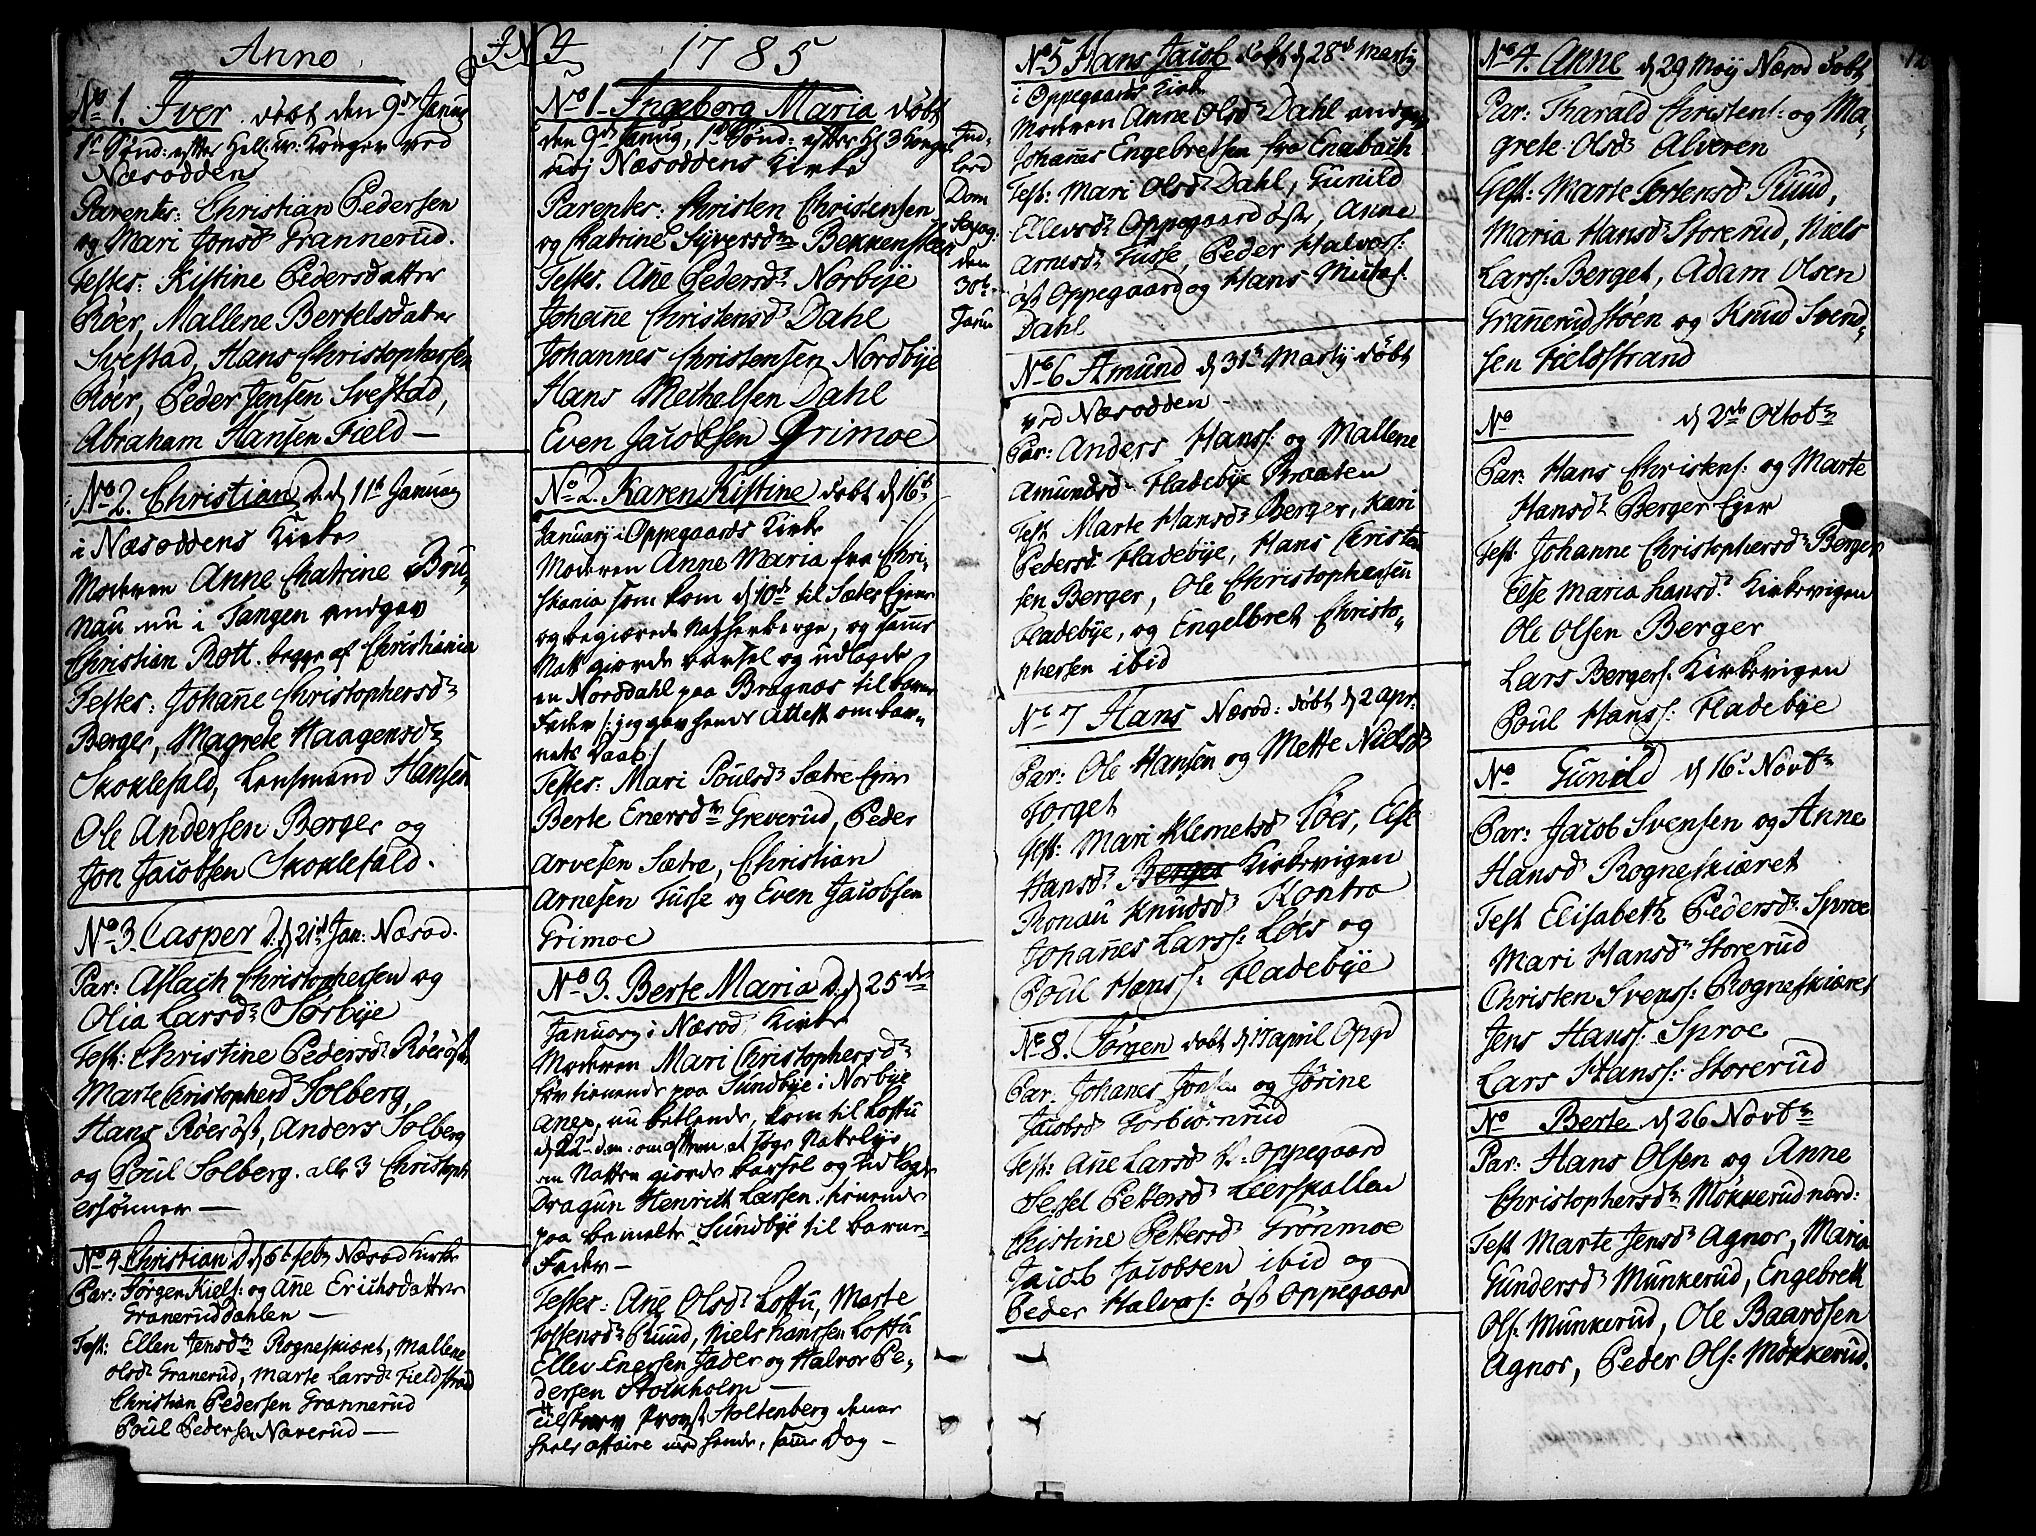 Anno
1785
No 1. Iver døbt den 9de Januy
1te Sønd: efter Hell: tr: Konger ved
Næsodden
Parentes: Christian Pedersen
og Mari Jonsdr Grannerud.
Testes: Kistine Pedersdatter
Röer, Mallene Bertelsdatter
Svestad, Hans Christophersen
Röer, Peder Jensen Svestad,
Abraham Hansen Field —
No 2. Christian D. d 11te Januy
i Næsoddens Kirke
Moderen Anne Chatrine Bru-
nau nu i Tangen angav
Christian Rott. begge af Christiania
Testes: Johanne Christophersdr
Berger, Magrete Haagensdr
Skoklefald, Lensmand Hansen
Ole Andersen Berger og
Jon Jacobsen Skoklefald.
No 3. Casper D. d 21de Jan: Næsod.
Par: Aslach Christophersen og
Olia Larsdr Sørbye
Test: Christine Pedersdr Röer øst,
Marte Christophersd Solberg,
Hans Röer øst, Anders Solberg
og Poul Solberg. alle 3 Christoph
ersønner —
No 4 Christian D d 6te febr Næsod Kirke
Par: Jørgen Kiels: og Ane Erichsdatter
Granerud dahlen —
Test: Ellen Jensdr Rogneskiæret, Mallene
Olsdr Granerud, Marte Larsdr Fieldstrad
Christian Pedersen Grannerud
Poul Pedersen Naverud —
No 1. Ingeborg Maria døbt
den 9de Januy, 1te Sønd: efter H 3 Konger
udj Næsoddens Kirke
Parentes: Christen Christensen
og Chatrine Syversdr Bekkensteen
Testes. Ane Pedersdr Norbye
Johanne Christensdr Dahl
Johannes Christensen Nordbye
Hans Michelsen Dahl
Even Jacobsen Grimoe
Ind-
lerd
Dom
Sexag:
den
30te
Janu
No 2. Karen Kistine døbt d 16de
January i Oppegaards Kirke
Moderen Anne Maria fra Chri-
stiania som kom d 10de til Sæter Ejer
og begierede Natherberge, og samme
Natt giorde barsel og udlagde
en Norddahl paa Bragnæs til barne
Fader /: jeg gav hende Attest om bar-
nets Daab /
Testes: Mari Poulsdr Sætre Ejer
Berte Enersdr Greverud, Peder
Arvesen Sætre, Christian
Arnesen Tusse og Even Jacobsen
Grimoe
No 3. Berte Maria D. d 25de
January i Næsod: Kirke
Moderen Mari Christophersdr
før tienende paa Sundbye i Norbye
Anex, nu betlende, kom til Loftu
d 22de dm: om aften at søge Natteleje
om Natten giorde barsel og udlagde
Dragun Henrich Larsen tienende
paa bemelte Sundbye til barne-
Fader —
Testes: Ane Olsdr Loftu, Marte
Tostensdr Ruud, Niels Hanssen Loftu
Ellev Enersen Jader og Halvor Pe-
dersen Stokholm —
tilskrev Provst Stoltenberg denne
heele affaire med hende, samme Dag —
No 5 Hans Jacob døbt d 28de Marty
i Oppegaards Kirke
Moderen Anne Olsdr Dahl angav
Johannes Engebretsen fra Enebach
Test: Mari Olsdr Dahl, Gunild
Ellevsdr Oppegaard østr, Anne
Arnesdr Tusse, Peder Halvors:
øst Oppegaard og Hans
Dahl
No 6 Amund d 31te Marty døbt
ved Næsodden —
Par: Anders Hans: og Mallene
Amundsdr Fladebye Braaten
Test Marte Hansdr Berger, Kari
Pedersd Fladebye, Hans Christen
sen Berger, Ole Christophersen
Fladebye, og Engelbret Christo-
phersen ibid
No 7 Hans Næsod: døbt d 2 apr:
Par: Ole Hansen og Mette Nielsd
Torget
Test: Mari Klemetsd Løes, Else
Hansdr Berger Kirkevigen
Ronau Knudsdr Kontra
Johanes Larss: Løes og
Poul Hanss: Fladebye
No 8. Jørgen døbt d 17 april Opgd
Par: Johanes Jonsen og Jørine
Jacobsd Torbiørnrud
Test: Ane Larsd V: Oppegaard
Sesel Pettersdr Leerskallen
Christine Pettersdr Grønmoe
Jacob Jacobsen ibid og
Peder Halvors: øst Oppegaard
No 4. Anne d 29 May Næsod døbt
Par: Tharald Christens: og Ma-
grete Olsdr Alveren
Test: Marte Tortensd Ruud,
Maria Hansdr Storerud, Niels
Larss: Berget, Adam Olsen
Grannerudstøen og Knud Svend-
sen Fieldstrand
No d 2de Octobr
Par: Hans Christens: og Marte
Hansdr Berger Ejer
Test Johanne Christophersdr Berger
Else Maria Hansdr Kirkevigen
Ole Olsen Berger
Lars Bergers: Kirkevigen
Poul Hanss: Fladebye
No Gunild d 16de Novbr
Par: Jacob Svensen og Anne
Hansdr Rogneskiæret
Test Elisabeth Pedersdr Sproe
Mari Hansdr Storerud
Christen Svenss: Rogneskiæret
Jens Hanss. Sproe
Lars Hanss: Storerud
No Berte d 26 Novbr
Par: Hans Olsen og Anne
Christophersdr Møkkerud nord:
Test Marte Jensdr Agnor, Maria
Gundersdr Munkerud, Engebreth
Ols: Munkerud, Ole Baardsen
Agnor, Peder Ols: Møkkerud.